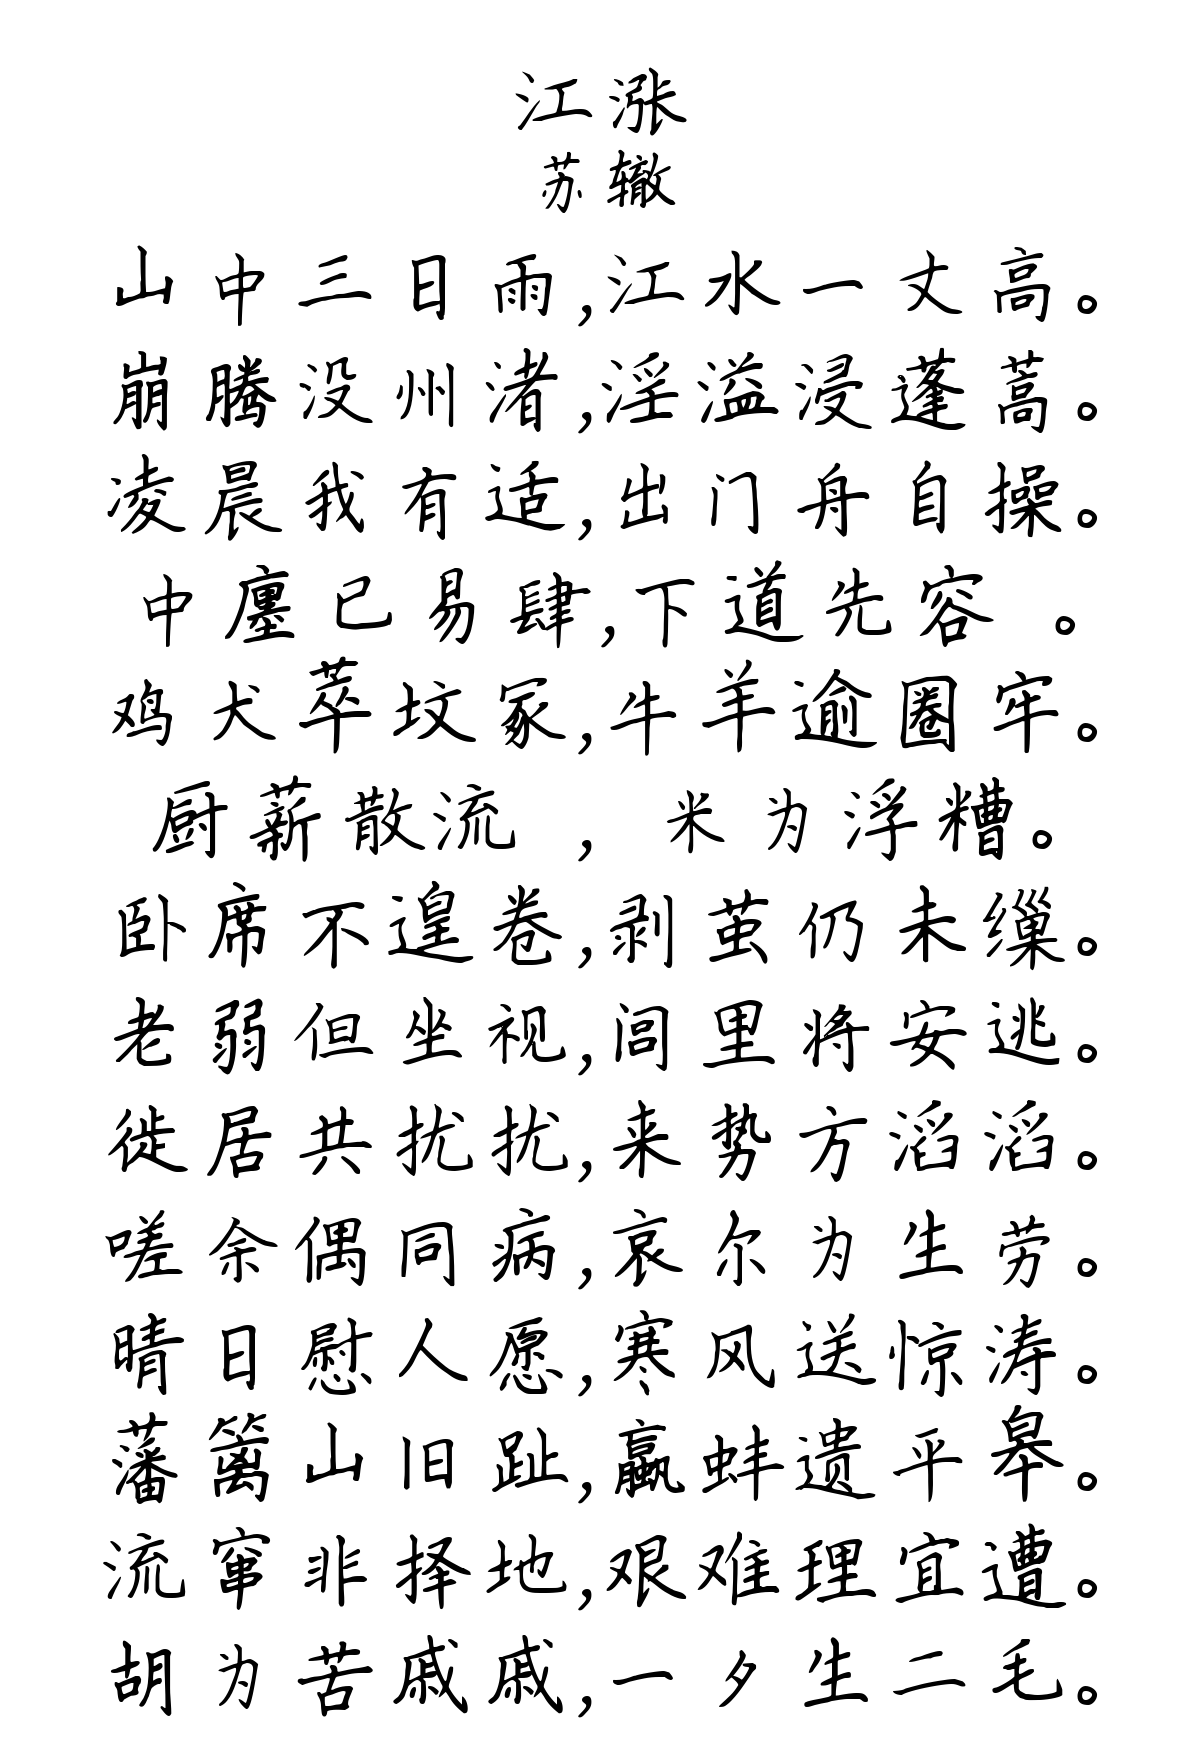 江涨
苏辙
山中三日雨,江水一丈高。
崩腾没州渚,淫溢浸蓬蒿。
凌晨我有适,出门舟自操。
中廛已易肆,下道先容 。
鸡犬萃坟冢,牛羊逾圈牢。
厨薪散流 , 米为浮糟。
卧席不遑卷,剥茧仍未缫。
老弱但坐视,闾里将安逃。
徙居共扰扰,来势方滔滔。
嗟余偶同病,哀尔为生劳。
晴日慰人愿,寒风送惊涛。
藩篱山旧趾,蠃蚌遗平皋。
流窜非择地,艰难理宜遭。
胡为苦戚戚,一夕生二毛。